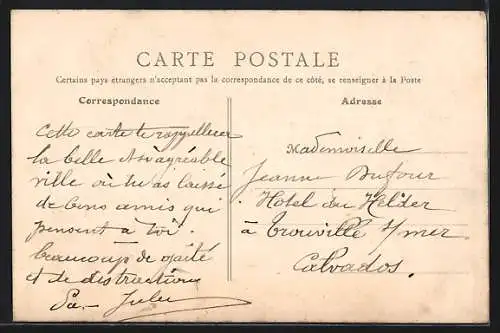 CARTE POSTALE
Certains pays étrangers n'acceptant pas la correspondance de ce côté, se renseigner à la Poste
Correspondance
Adresse
Cette carte te rappellera
la belle et si agréable
ville où tu as laissé
de bons amis qui
pensent à toi.
beaucoup de gaité
et de distractions
Mademoiselle
Jeanne Dufour
Hotel du Helder
à Trouville s/mer
Calvados.